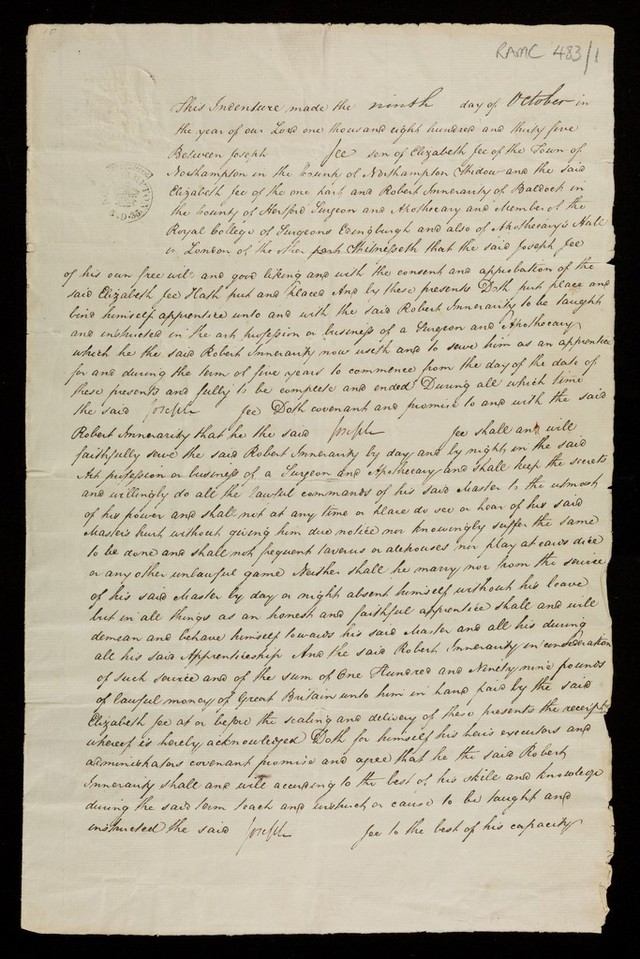 RAMC 483/1
This Indenture, made the ninth day of October in
the year of our Lord one thousand eight hundred and thirty five
Between Joseph Jee son of Elizabeth Jee of the Town of
Northampton in the County of Northampton Widow and the said
Elizabeth Jee of the one part and Robert Innerarity of Baldock in
the County of Hertford Surgeon and Apothecary and Member of the
Royal College of Surgeons Edinburgh and also of Apothecary's Hall
in London of the other part Witnesseth that the said Joseph Jee
of his own free will and good liking and with the consent and approbation of the
said Elizabeth Jee Hath put and placed And by these presents Doth put place and
bind himself apprentice unto and with the said Robert Innerarity to be taught
and instructed in the art profession or business of a Surgeon and Apothecary
which he the said Robert Innerarity now useth and to serve him as an apprentice
for and during the term of five years to commence from the day of the date of
these presents and fully to be compleat and ended During all which time
the said Joseph Jee Doth covenant and promise to and with the said
Robert Innerarity that he the said Joseph Jee shall and will
faithfully serve the said Robert Innerarity by day and by night in the said
Art profession or business of a Surgeon and Apothecary and shall keep the secrets
and willingly do all the lawful commands of his said Master to the utmost
of his power and shall not at any time or place do see or hear of his said
Masters hurt without giving him due notice nor knowingly suffer the same
to be done and shall not frequent taverns or alehouses nor play at cards dice
or any other unlawful game Neither shall he marry nor from the service
of his said Master by day or night absent himself without his leave
but in all things as an honest and faithful apprentice shall and will
demean and behave himself towards his said Master and all his during
all his said Apprenticeship And the said Robert Innerarity in consideration
of such service and of the sum of One Hundred and Ninety nine pounds
of lawful money of Great Britain unto him in hand paid by the said
Elizabeth Jee at or before the sealing and delivery of these presents the receipt
whereof is hereby acknowledged Doth for himself his heirs executors and
administrators covenant promise and agree that he the said Robert
Innerarity shall and will according to the best of his skill and knowledge
during the said term teach and instruct or cause to be taught and
instructed the said Joseph Jee to the best of his capacity